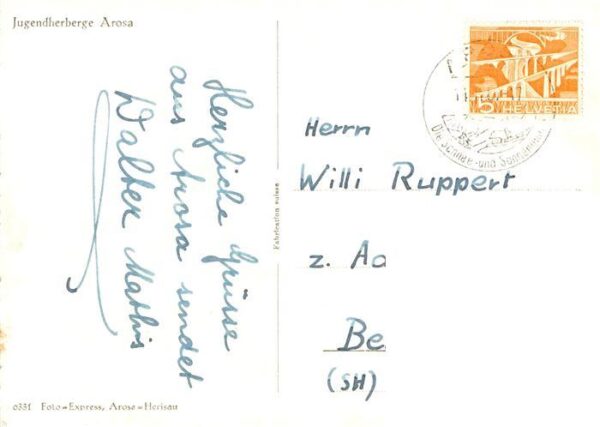 Jugendherberge Arosa
Herzliche Grüsse
aus Arosa sendet
Walter Mathis
Fabrication suisse
5 HELVETIA
Die Schnee- und
Herrn
Willi Ruppert
z. Ac
Be
(SH)
6351 Foto-Express, Arosa-Herisau